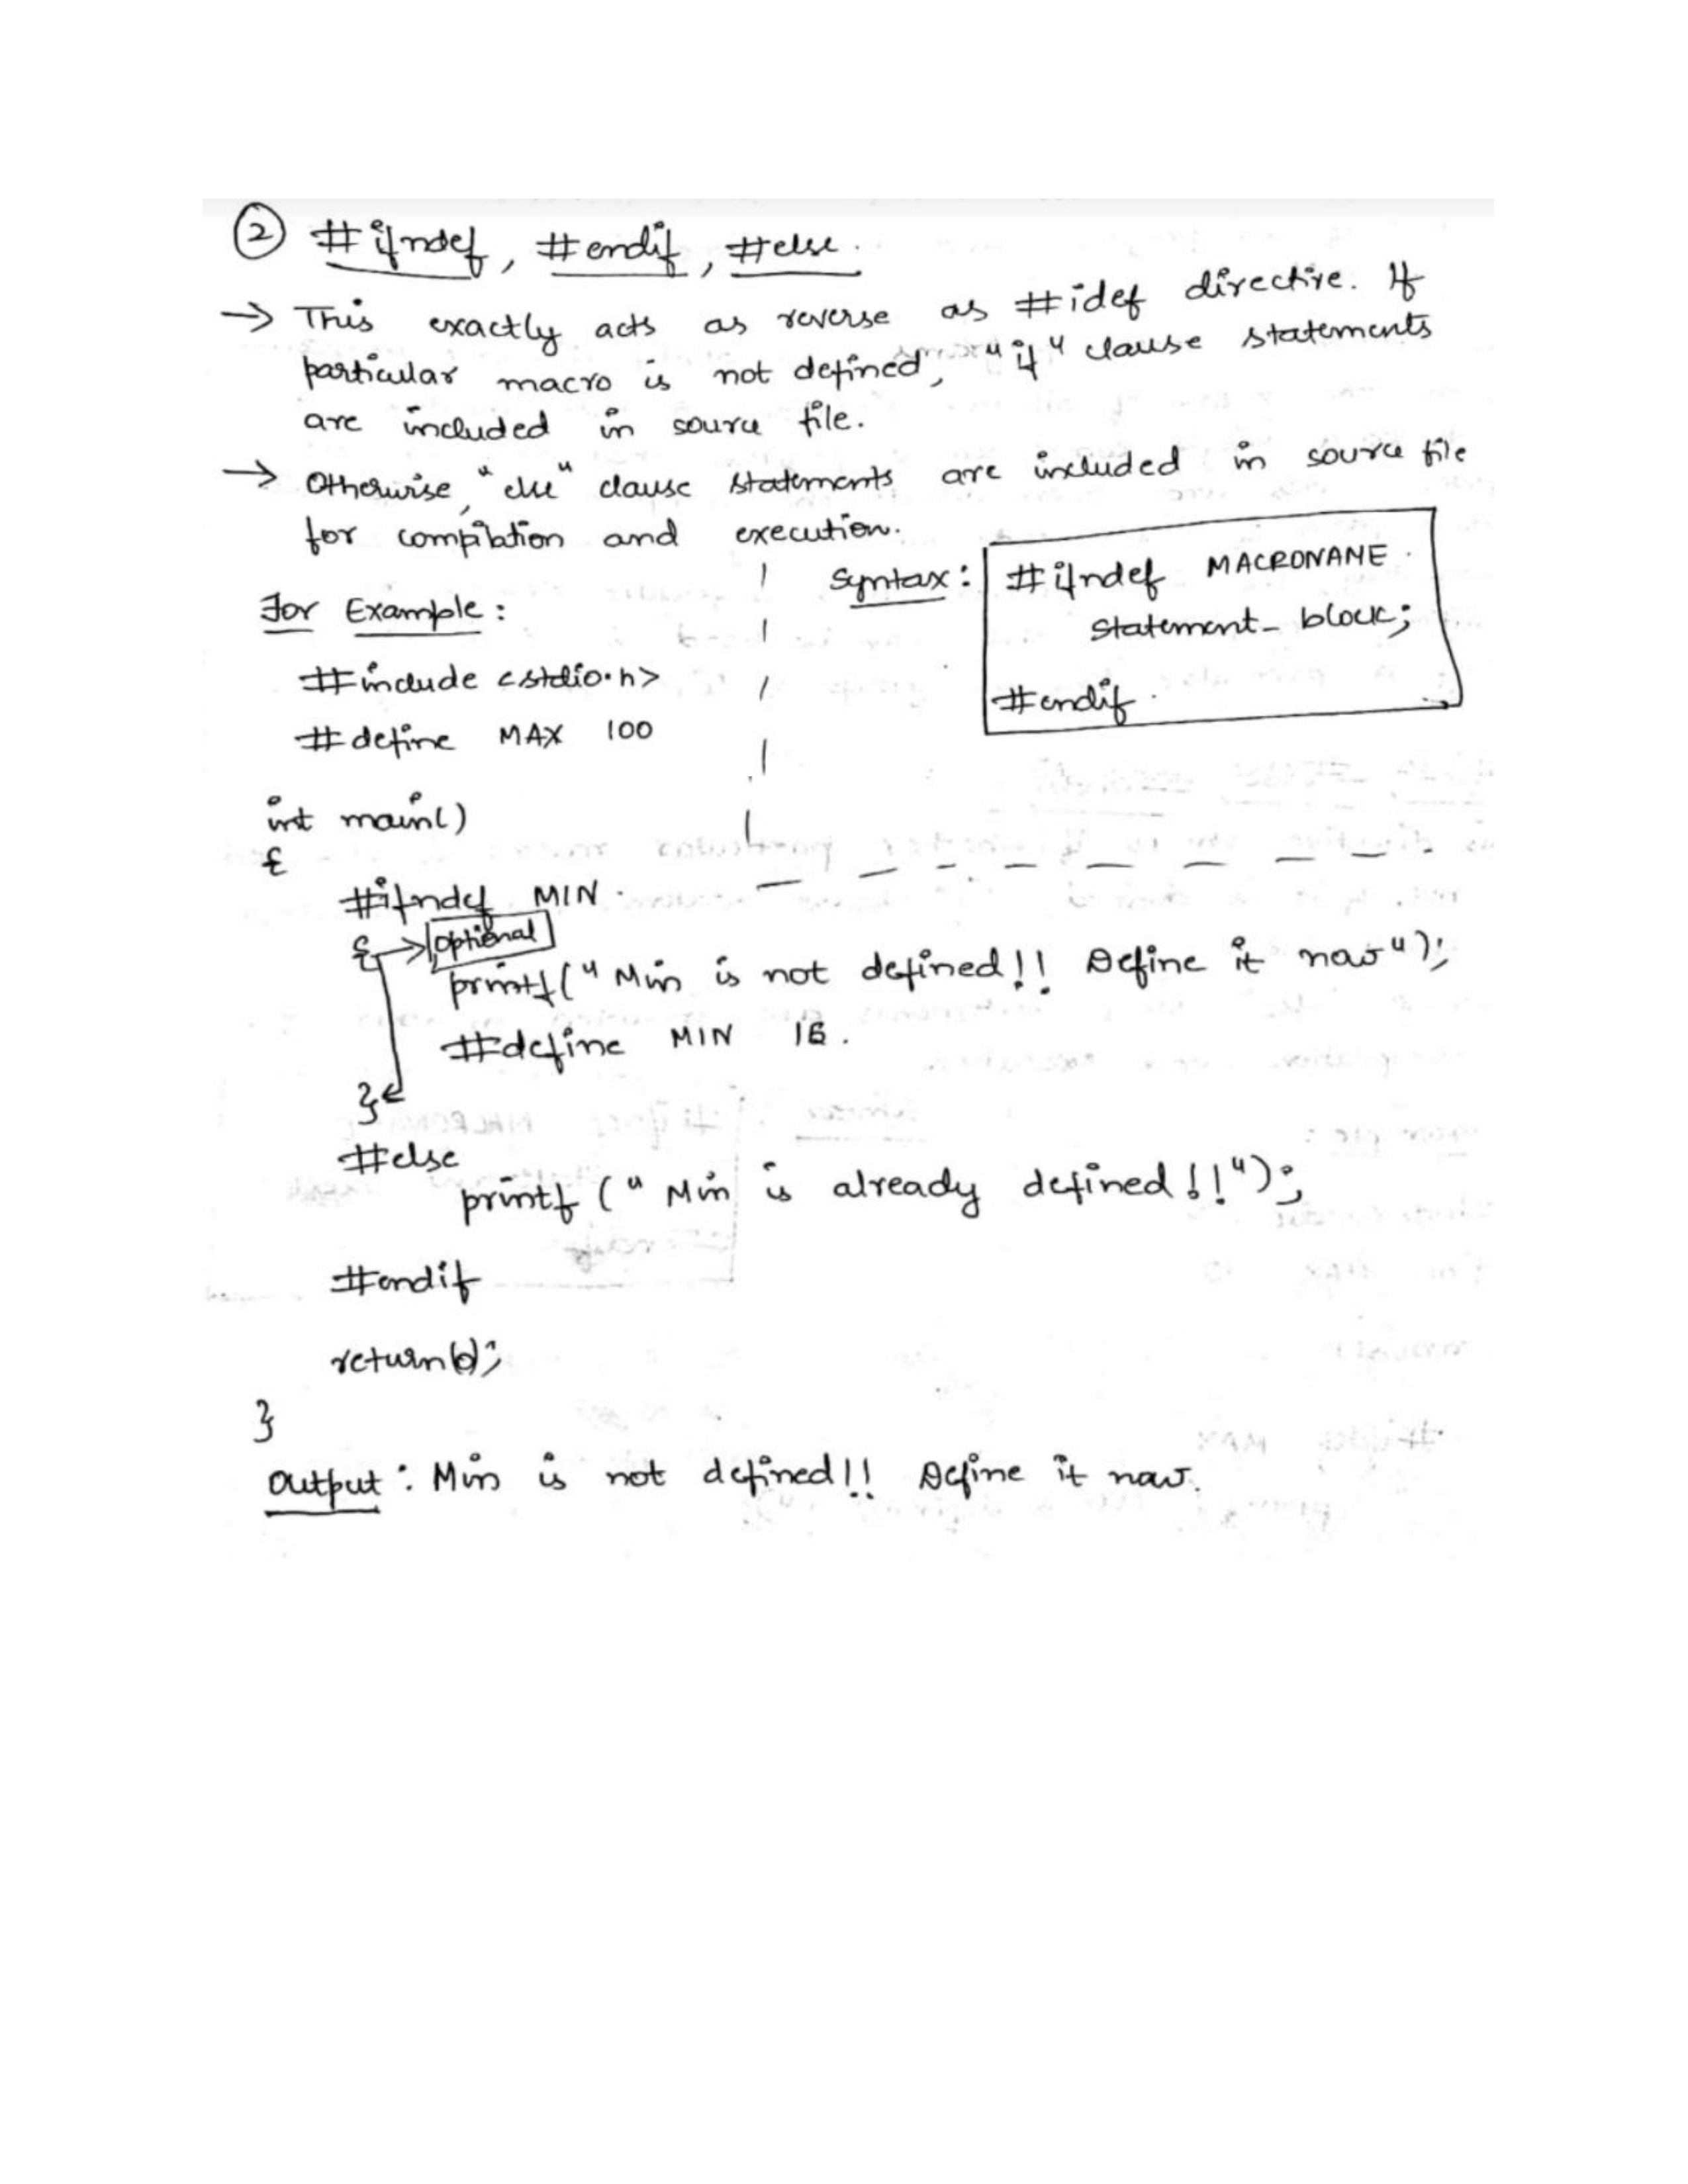 ② #ifndef, #endif, #else.
→ This exactly acts as reverse as #idef directive. If
particular macro is not defined, "if" clause statements
are included in source file.
→ Otherwise, "else" clause statements are included in source file
for compilation and execution.
Syntax: #ifndef MACRONAME.
statement_block;
#endif.
For Example:
#include <stdio.h>
#define MAX 100
int main()
{
#ifndef MIN.
{ → optional
printf("Min is not defined!! Define it now");
#define MIN
}
#else
printf("Min is already defined!!");
#endif
return(0);
}
Output: Min is not defined!! Define it now.